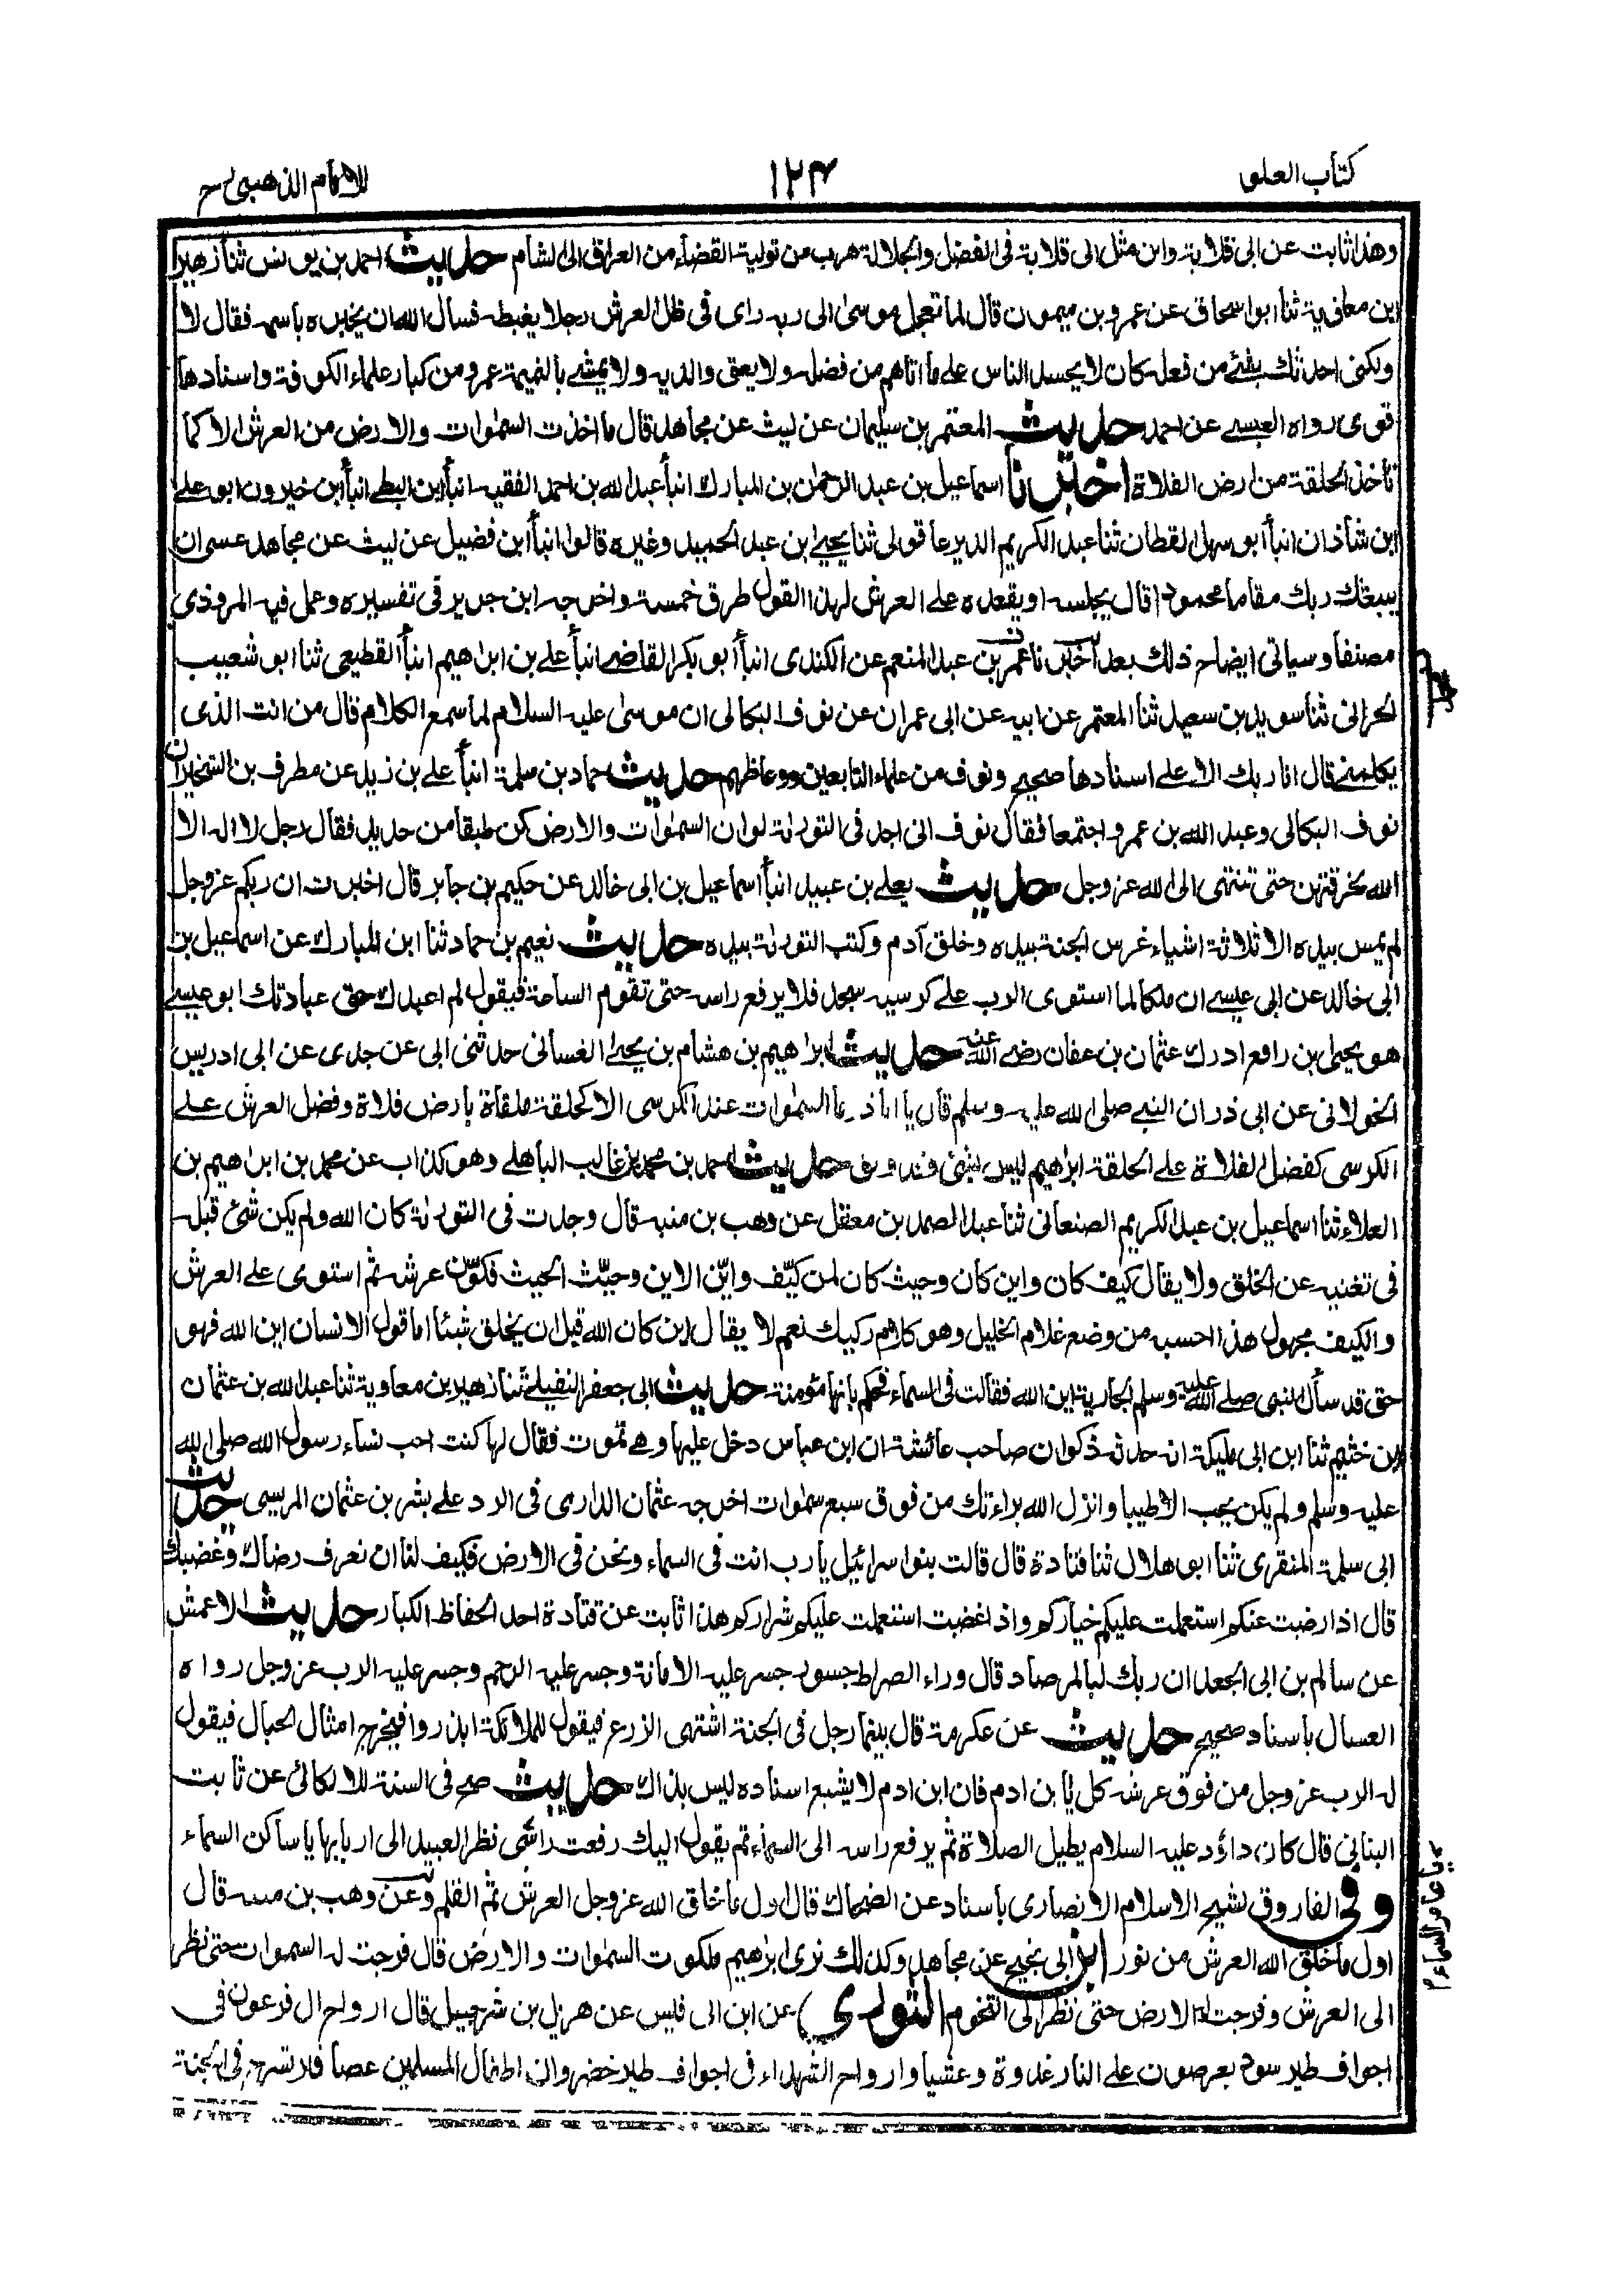 كتاب العلو
١٢٤
للامام الذهبي رح
وهذا ثابت عن ابى قلابة واين مثل ابى قلابة فى الفضل والجلالة هرب من تولية القضاء من العراق الى الشام حديث احمد بن يونس ثنا زهير
ابن معاوية ثنا ابو اسحاق عن عمرو بن ميمون قال لما تعجل موسى الى ربه راى فى ظل العرش رجلا يغبطه فسال الله ان يخبره باسمه فقال لا
ولكنى احدثك بشئ من فعله كان لا يحسد الناس على ما اتاهم من فضله ولا يعق والديه ولا يمشى بالنميمة عمرو من كبار علماء الكوفة واسنادها
قوى رواه العبسى عن احمد حديث المعتمر بن سليمان عن ليث عن مجاهد قال ما اخذت السموات والارض من العرش الا كما
تاخذ الحلقة من ارض الفلاة اخبرنا اسماعيل بن عبد الرحمن بن المبارك انبأ عبد الله بن احمد الفقيه انبأ ابن البطى انبأ ابن خيرون ابو على
ابن شاذان انبأ ابو سهل القطان ثنا عبد الكريم الديرعاقولى ثنا يحيى ابن عبد الحميد وغيره قالوا انبأ ابن فضيل عن ليث عن مجاهد عسى ان
يبعثك ربك مقاما محمودا قال يجلسه او يقعده على العرش لهذا القول طرق خمسة واخرجه ابن جرير فى تفسيره وعمل فيه المروذى
مصنفا وسياتى ايضاح ذلك بعد اخبرنا عمر بن عبد المنعم عن الكندى انبأ ابو بكر القاضى انبأ على بن ابراهيم انبأ القطيعى ثنا ابو شعيب
الحرانى ثنا سويد بن سعيد ثنا المعتمر عن ابيه عن ابى عمران عن نوف البكالى ان موسى عليه السلام لما سمع الكلام قال من انت الذى
يكلمنى قال انا ربك الاعلى اسنادها صحيح ونوف من علماء التابعين ووعاظهم حديث حماد بن سلمة انبأ على بن زيد عن مطرف بن الشخير ان
نوف البكالى وعبد الله بن عمرو اجتمعا فقال نوف انى اجد فى التورٰىة لو ان السموات والارض كن طبقا من حديد فقال رجل لا اله الا
الله لخرقتهن حتى تنتهى الى الله عز وجل حديث يعلى بن عبيد انبأ اسماعيل بن ابى خالد عن حكيم بن جابر قال اخبرت ان ربكم عز وجل
لم يمس بيده الا ثلاثة اشياء غرس الجنة بيده وخلق آدم وكتب التورٰىة بيده حديث نعيم بن حماد ثنا ابن المبارك عن اسماعيل بن
ابى خالد عن ابى عيسى ان ملكا لما استوى الرب على كرسيه سجد فلا يرفع راسه حتى تقوم الساعة فيقول لم اعبدك حق عبادتك ابو عيسى
هو يحيى ابن رافع ادرك عثمان بن عفان رضى الله عنه حديث ابراهيم بن هشام بن يحيى الغسانى حدثنى ابى عن جدى عن ابى ادريس
الخولانى عن ابى ذر ان النبى صلى الله عليه وسلم قال يا اباذر ما السموات عند الكرسى الا كحلقة ملقاة بارض فلاة وفضل العرش على
الكرسى كفضل الفلاة على الحلقة ابراهيم ليس بشئ حديث احمد بن محمد بن غالب الباهلى وهو كذاب عن محمد بن ابراهيم بن
العلاء ثنا اسماعيل بن عبد الكريم الصنعانى ثنا عبد الصمد بن معقل عن وهب بن منبه قال وجدت فى التورٰىة كان الله ولم يكن شئ قبله
فى تغنيه عن الخلق ولا يقال كيف كان واين كان وحيث كان لمن كيّف وايّن الاين وحيّث الحيث فكوّن عرشه ثم استوى على العرش
والكيف مجهول هذا احسبه من وضع غلام الخليل وهو كلام ركيك نعم لا يقال اين كان الله قبل ان يخلق شيئا اما قول الانسان اين الله فهو
حق قد سأل النبى صلى الله عليه وسلم الجارية اين الله فقالت فى السماء فحكم بانها مؤمنة حديث ابى جعفر النفيلى ثنا زهير بن معاوية ثنا عبد الله بن عثمان
بن خثيم ثنا ابن ابى مليكة انه حدثه ذكوان صاحب عائشة ان ابن عباس دخل عليها وهى تموت فقال لها كنت احب نساء رسول الله صلى الله
عليه وسلم ولم يكن يحب الا طيبا وانزل الله براءتك من فوق سبع سموات اخرجه عثمان الدارمى فى الرد على بشر بن عثمان المريسى حديث
ابى سلمة المنقرى ثنا ابو هلال ثنا قتادة قال قالت بنو اسرائيل يا رب انت فى السماء ونحن فى الارض فكيف لنا ان نعرف رضاك وغضبك
قال اذا رضيت عنكم استعملت عليكم خياركم واذا غضبت استعملت عليكم شراركم هذا ثابت عن قتادة احد الحفاظ الكبار حديث الاعمش
عن سالم بن ابى الجعد ان ربك لبالمرصاد قال وراء الصراط جسور جسر عليه الامانة وجسر عليه الرحم وجسر عليه الرب عز وجل رواه
العسال باسناد صحيح حديث عن عكرمة قال بينما رجل فى الجنة اشتهى الزرع فيقول للملائكة ابذروا فيخرج امثال الجبال فيقول
له الرب عز وجل من فوق عرشه كل يا بن ادم فان ابن ادم لا يشبع اسناده ليس بذاك حديث صح فى السنة للالكائى عن ثابت
البنانى قال كان داؤد عليه السلام يطيل الصلاة ثم يرفع راسه الى السماء ثم يقول اليك رفعت راسى نظر العبيد الى اربابها يا ساكن السماء
وفى الفاروق لشيخ الاسلام الانصارى باسناد عن الضحاك قال اول ما خلق الله عز وجل العرش ثم القلم وعن وهب بن منبه قال
اول ما خلق الله العرش من نور ابن ابى نجيح عن مجاهد وكذلك نرى ابراهيم ملكوت السموات والارض قال فرجت له السموات حتى نظر
الى العرش وفرجت له الارض حتى نظر الى التخوم الثورى عن ابن ابى قيس عن هزيل بن شرحبيل قال ارواح ال فرعون فى
اجواف طير سود يعرضون على النار غدوة وعشيا وارواح الشهداء فى اجواف طير خضر وان اطفال المسلمين عصافير تسرح فى الجنة